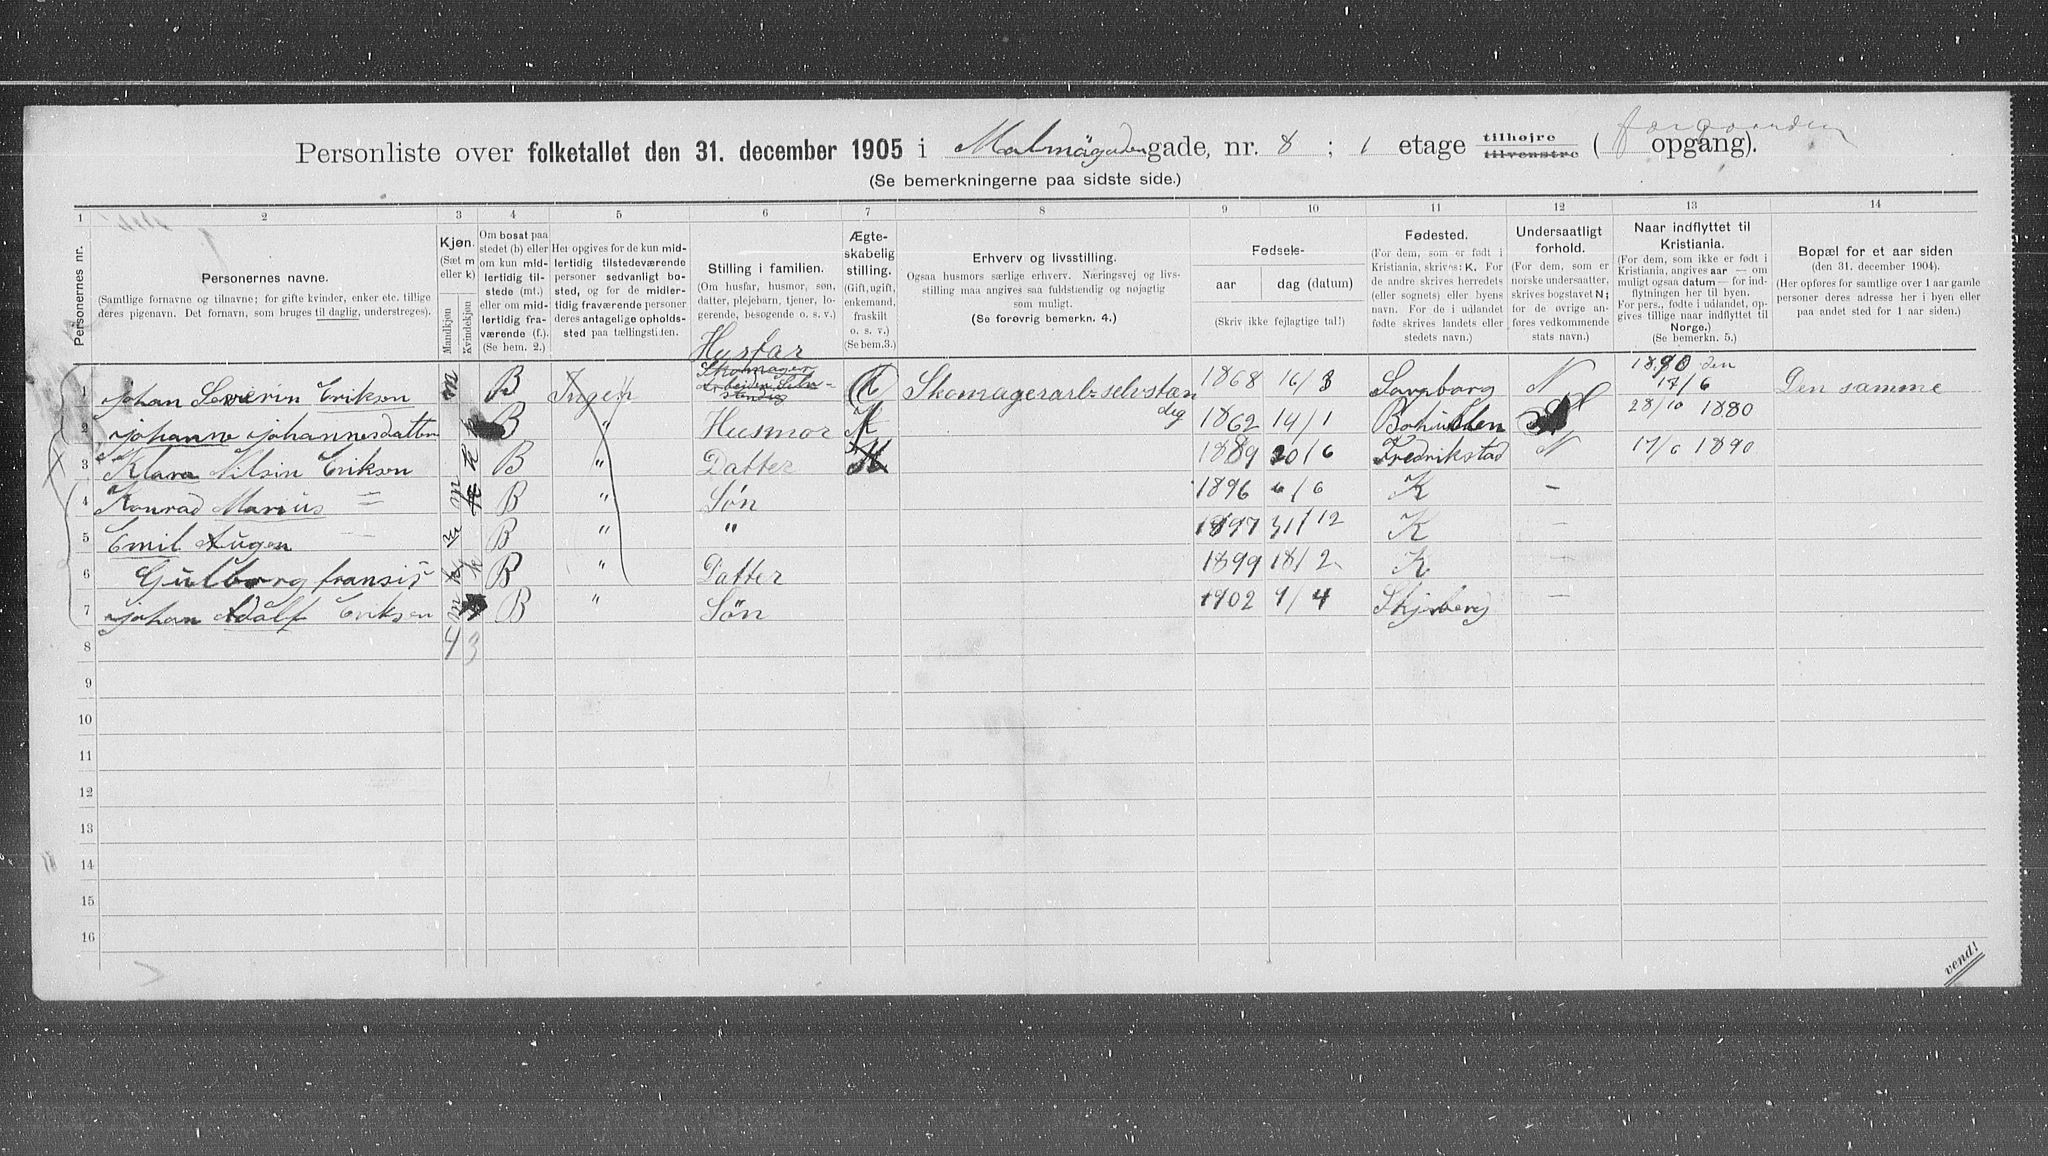 Personliste over folketallet den 31. december 1905 i Malmögadengade, nr. 8 ; 1 etage tilhøjre tilvenstre ( opgang).
(Se bemerkningerne paa sidste side.)
1 2 3 4 5 6 7 8 9 10 11 12 13 14
Personernes nr.
Personernes navne.
(Samtlige fornavne og tilnavne; for gifte kvinder, enker etc. tillige deres pigenavn. Det fornavn, som bruges til daglig, understreges).
Kjøn.
(Sæt m eller k)
Mandkjøn
Kvindekjøn
Om bosat paa stedet (b) eller om kun midlertidig tilstede (mt.) eller om midlertidig fraværende (f.). (Se bem. 2.)
Her opgives for de kun midlertidig tilstedeværende personer sedvanligt bosted, og for de midlertidig fraværende personer deres antagelige opholdssted paa tællingstiden.
Stilling i familien.
(Om husfar, husmor, søn, datter, plejebarn, tjener, logerende, besøgende o. s. v.)
Ægteskabelig stilling.
(Gift, ugift, enkemand, fraskilt o. s. v.)
(Se bem. 3.)
Erhverv og livsstilling.
Ogsaa husmors særlige erhverv. Næringsvej og livsstilling maa angives saa fuldstændig og nøjagtig som muligt.
(Se forøvrig bemerkn. 4.)
Fødsels-
aar dag (datum)
(Skriv ikke fejlagtige tal!)
Fødested.
(For dem, som er født i Kristiania, skrives: K. For de andre skrives herredets (eller sognets) eller byens navn. For de i udlandet fødte skrives landets eller stedets navn.)
Undersaatligt forhold.
(For dem, som er norske undersaatter, skrives bogstavet N; for de øvrige anføres vedkommende stats navn.)
Naar indflyttet til Kristiania.
(For dem, som ikke er født i Kristiania, angives aar — om muligt ogsaa datum — for indflytningen her til byen. For pers., fødte i udlandet, opgives tillige naar indflyttet til Norge.)
(Se bemerkn. 5.)
Bopæl for et aar siden
(den 31. december 1904).
(Her opføres for samtlige over 1 aar gamle personer deres adresse her i byen eller paa andet sted for 1 aar siden.)
Husfar
1 Johan Severin Eriksen m B Ingen Skomager Arbeider Selvstendig Skomagerarb. selvstændig 1868 16/3 Sarpborg N 1890 den 17/6 Den samme
2 Johanne Johannesdatter k B " Husmor 1862 14/1 Bohuslen 28/10 1880
3 Klara Nilsin Eriksen k B " Datter 1889 20/6 Fredrikstad N 17/6 1890
4 Konrad Marius = m B " Søn 1896 6/6 K —
5 Emil Augen — m B " " 1897 31/12 K —
6 Gulborg fransis k B " Datter 1899 18/2 K —
7 Johan Adalf Eriksen m B " Søn 1902 9/4 Skjeberg —
8 4 3
9
10
11
12
13
14
15
16
vend!